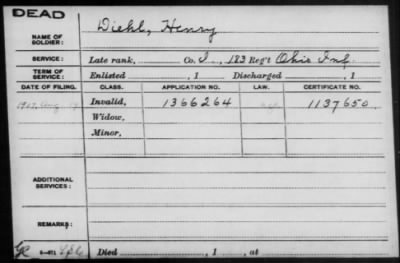 DEAD
NAME OF SOLDIER: Diehl, Henry
SERVICE: Late rank, Co. I, 183 Reg't Ohio Inf.
TERM OF SERVICE: Enlisted , 1 Discharged , 1
DATE OF FILING. CLASS. APPLICATION NO. LAW. CERTIFICATE NO.
1907, Aug Invalid, 1366264 1137650.
Widow,
Minor,
ADDITIONAL SERVICES:
REMARKS:
Died , 1 , at